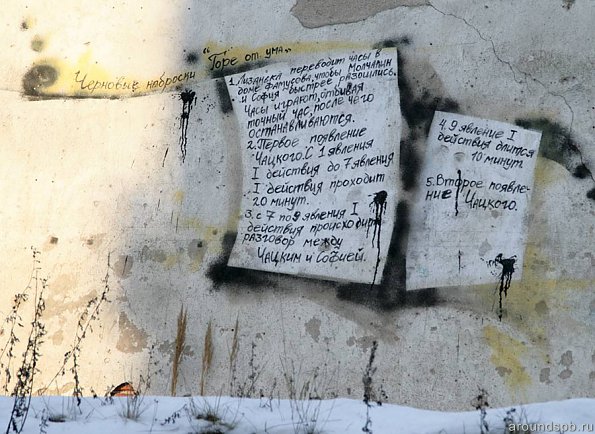 Черновые наброски
"Горе от ума"
1. Лизанька переводит часы в
доме Фамусова, чтобы Молчалин
и София быстрее разошлись.
Часы играют, отбивая
точный час, после чего
останавливаются.
2. Первое появление
Чацкого. С 1 явления
I действия до 7 явления
I действия проходит
20 минут.
3. С 7 по 9 явления I
действия происходит
разговор между
Чацким и Софией.
4. 9 явление I
действия длится
10 минут.
5. Второе появле-
ние Чацкого.
aroundspb.ru